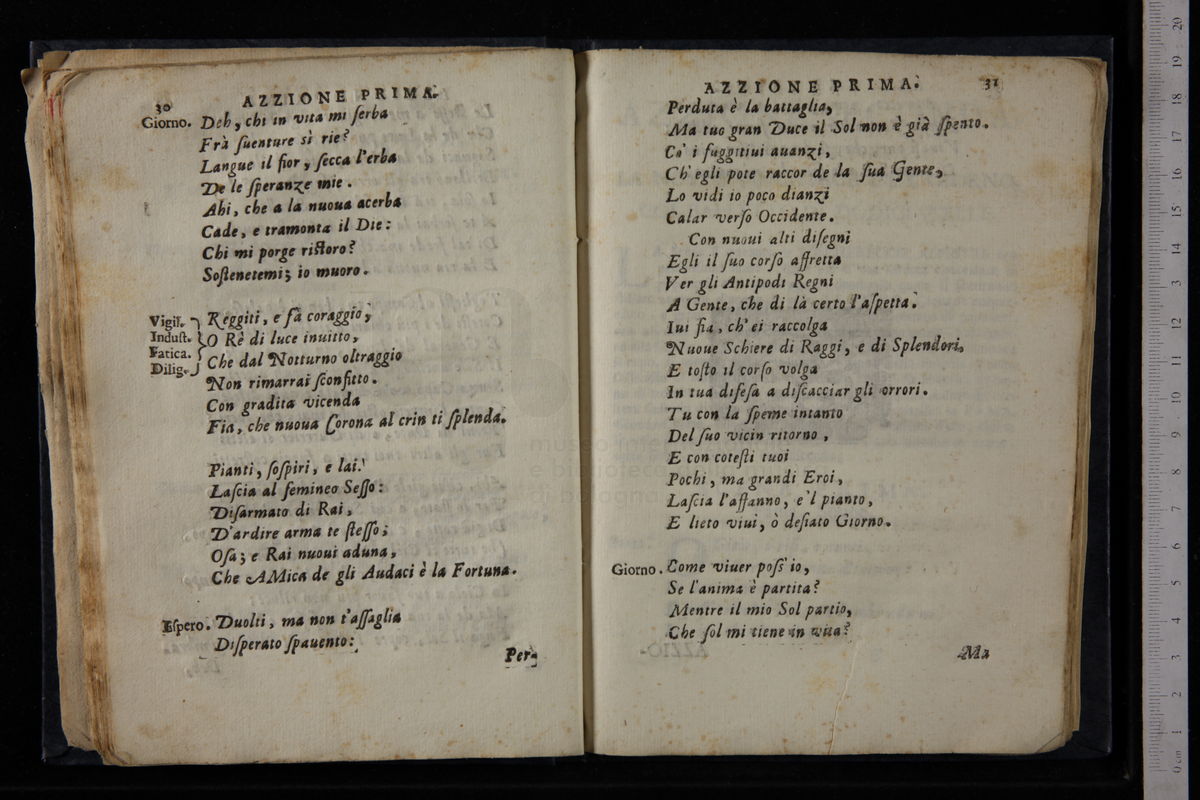 30
AZZIONE PRIMA.
Giorno. Deh, chi in vita mi ſerba
Frà ſuenture sì rie?
Langue il fior, ſecca l'erba
De le ſperanze mie.
Ahi, che a la nuoua acerba
Cade, e tramonta il Die:
Chi mi porge riſtoro?
Soſtenetemi; io muoro.
Vigil. Reggiti, e fà coraggio,
Induſt. O Rè di luce inuitto,
Fatica. Che dal Notturno oltraggio
Dilig. Non rimarrai ſconfitto.
Con gradita vicenda
Fia, che nuoua Corona al crin ti ſplenda.
Pianti, ſoſpiri, e lai
Laſcia al femineo Seſſo:
Diſarmato di Rai,
D'ardire arma te ſteſſo;
Oſa; e Rai nuoui aduna,
Che AMica de gli Audaci è la Fortuna.
Eſpero. Duolti, ma non t'aſſaglia
Diſperato ſpauento:
Per-
AZZIONE PRIMA.
31
Perduta è la battaglia,
Ma tuo gran Duce il Sol non è già ſpento.
Co' i fuggitiui auanzi,
Ch'egli pote raccor de la ſua Gente,
Lo vidi io poco dianzi
Calar verſo Occidente.
Con nuoui alti diſegni
Egli il ſuo corſo affretta
Ver gli Antipodi Regni
A Gente, che di là certo l'aſpetta.
Iui fia, ch'ei raccolga
Nuoue Schiere di Raggi, e di Splendori,
E toſto il corſo volga
In tua difeſa a diſcacciar gli orrori.
Tu con la ſpeme intanto
Del ſuo vicin ritorno,
E con coteſti tuoi
Pochi, ma grandi Eroi,
Laſcia l'affanno, e'l pianto,
E lieto viui, ò deſiato Giorno.
Giorno. Come viuer poſs'io,
Se l'anima è partita?
Mentre il mio Sol partio,
Che ſol mi tiene in vita?
Ma